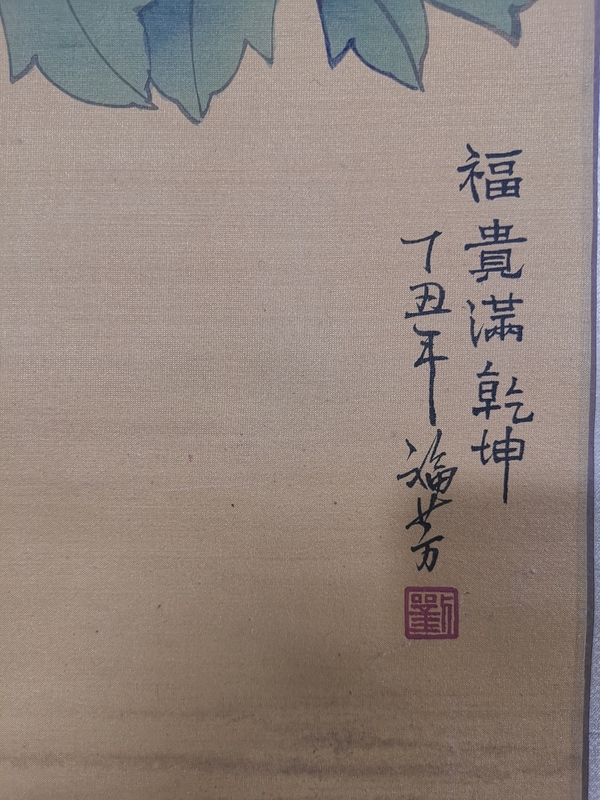 福貴滿乾坤
丁丑年 福芳
劉